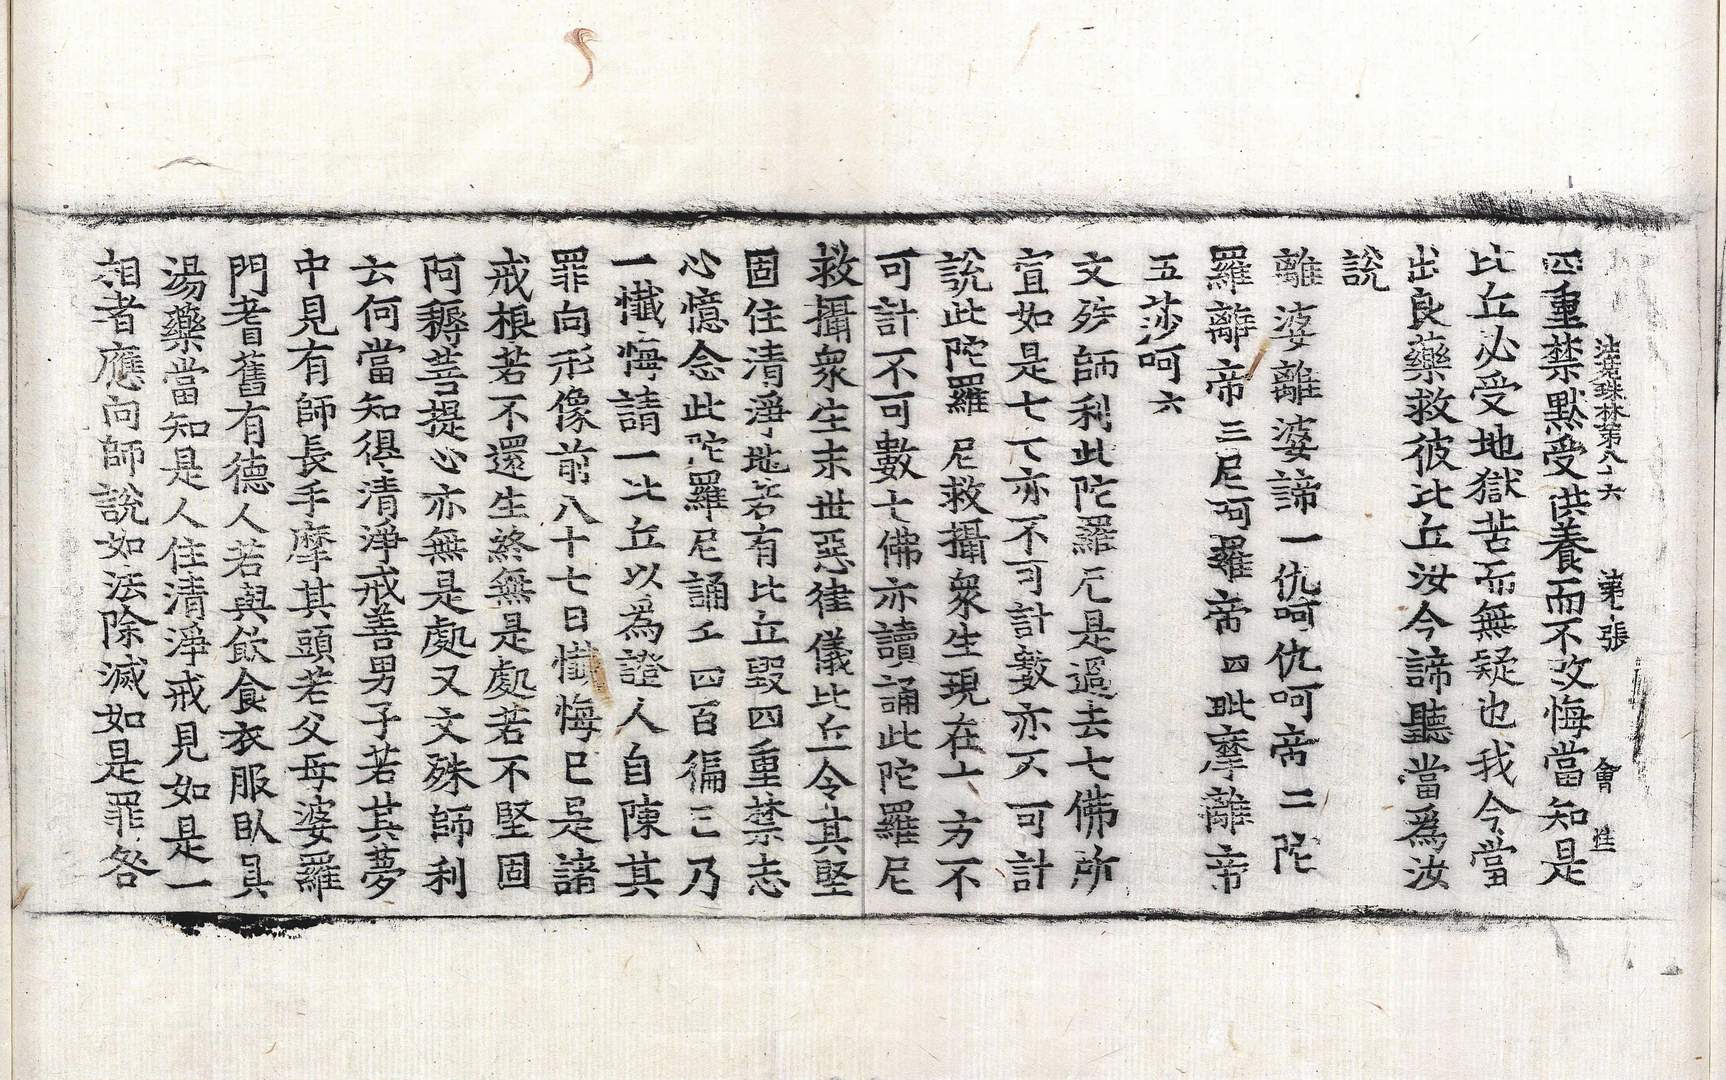 法苑珠林第八十六 第 張 會
四重禁默受供養而不改悔當知是
比丘必受地獄苦而無疑也我今當
出良藥救彼比丘汝今諦聽當爲汝
說
離婆離婆諦一仇呵仇呵帝二陀
羅離帝三尼呵羅帝四毗摩離帝
五莎呵六
文殊師利此陀羅尼是過去七佛所
宣如是七七亦不可計數亦不可計
說此陀羅尼救攝衆生現在十方不
可計不可數七佛亦讀誦此陀羅尼
救攝衆生末世惡律儀比丘令其堅
固住清淨地若有比丘毀四重禁志
心憶念此陀羅尼誦千四百徧已乃
一懺悔請一比丘以爲證人自陳其
罪向形像前八十七日懺悔已是諸
戒根若不還生終無是處若不堅固
阿耨菩提心亦無是處又文殊師利
云何當知得清淨戒善男子若其夢
中見有師長手摩其頭若父母婆羅
門耆舊有德人若與飲食衣服臥具
湯藥當知是人住清淨戒見如是一
相者應向師說如法除滅如是罪咎